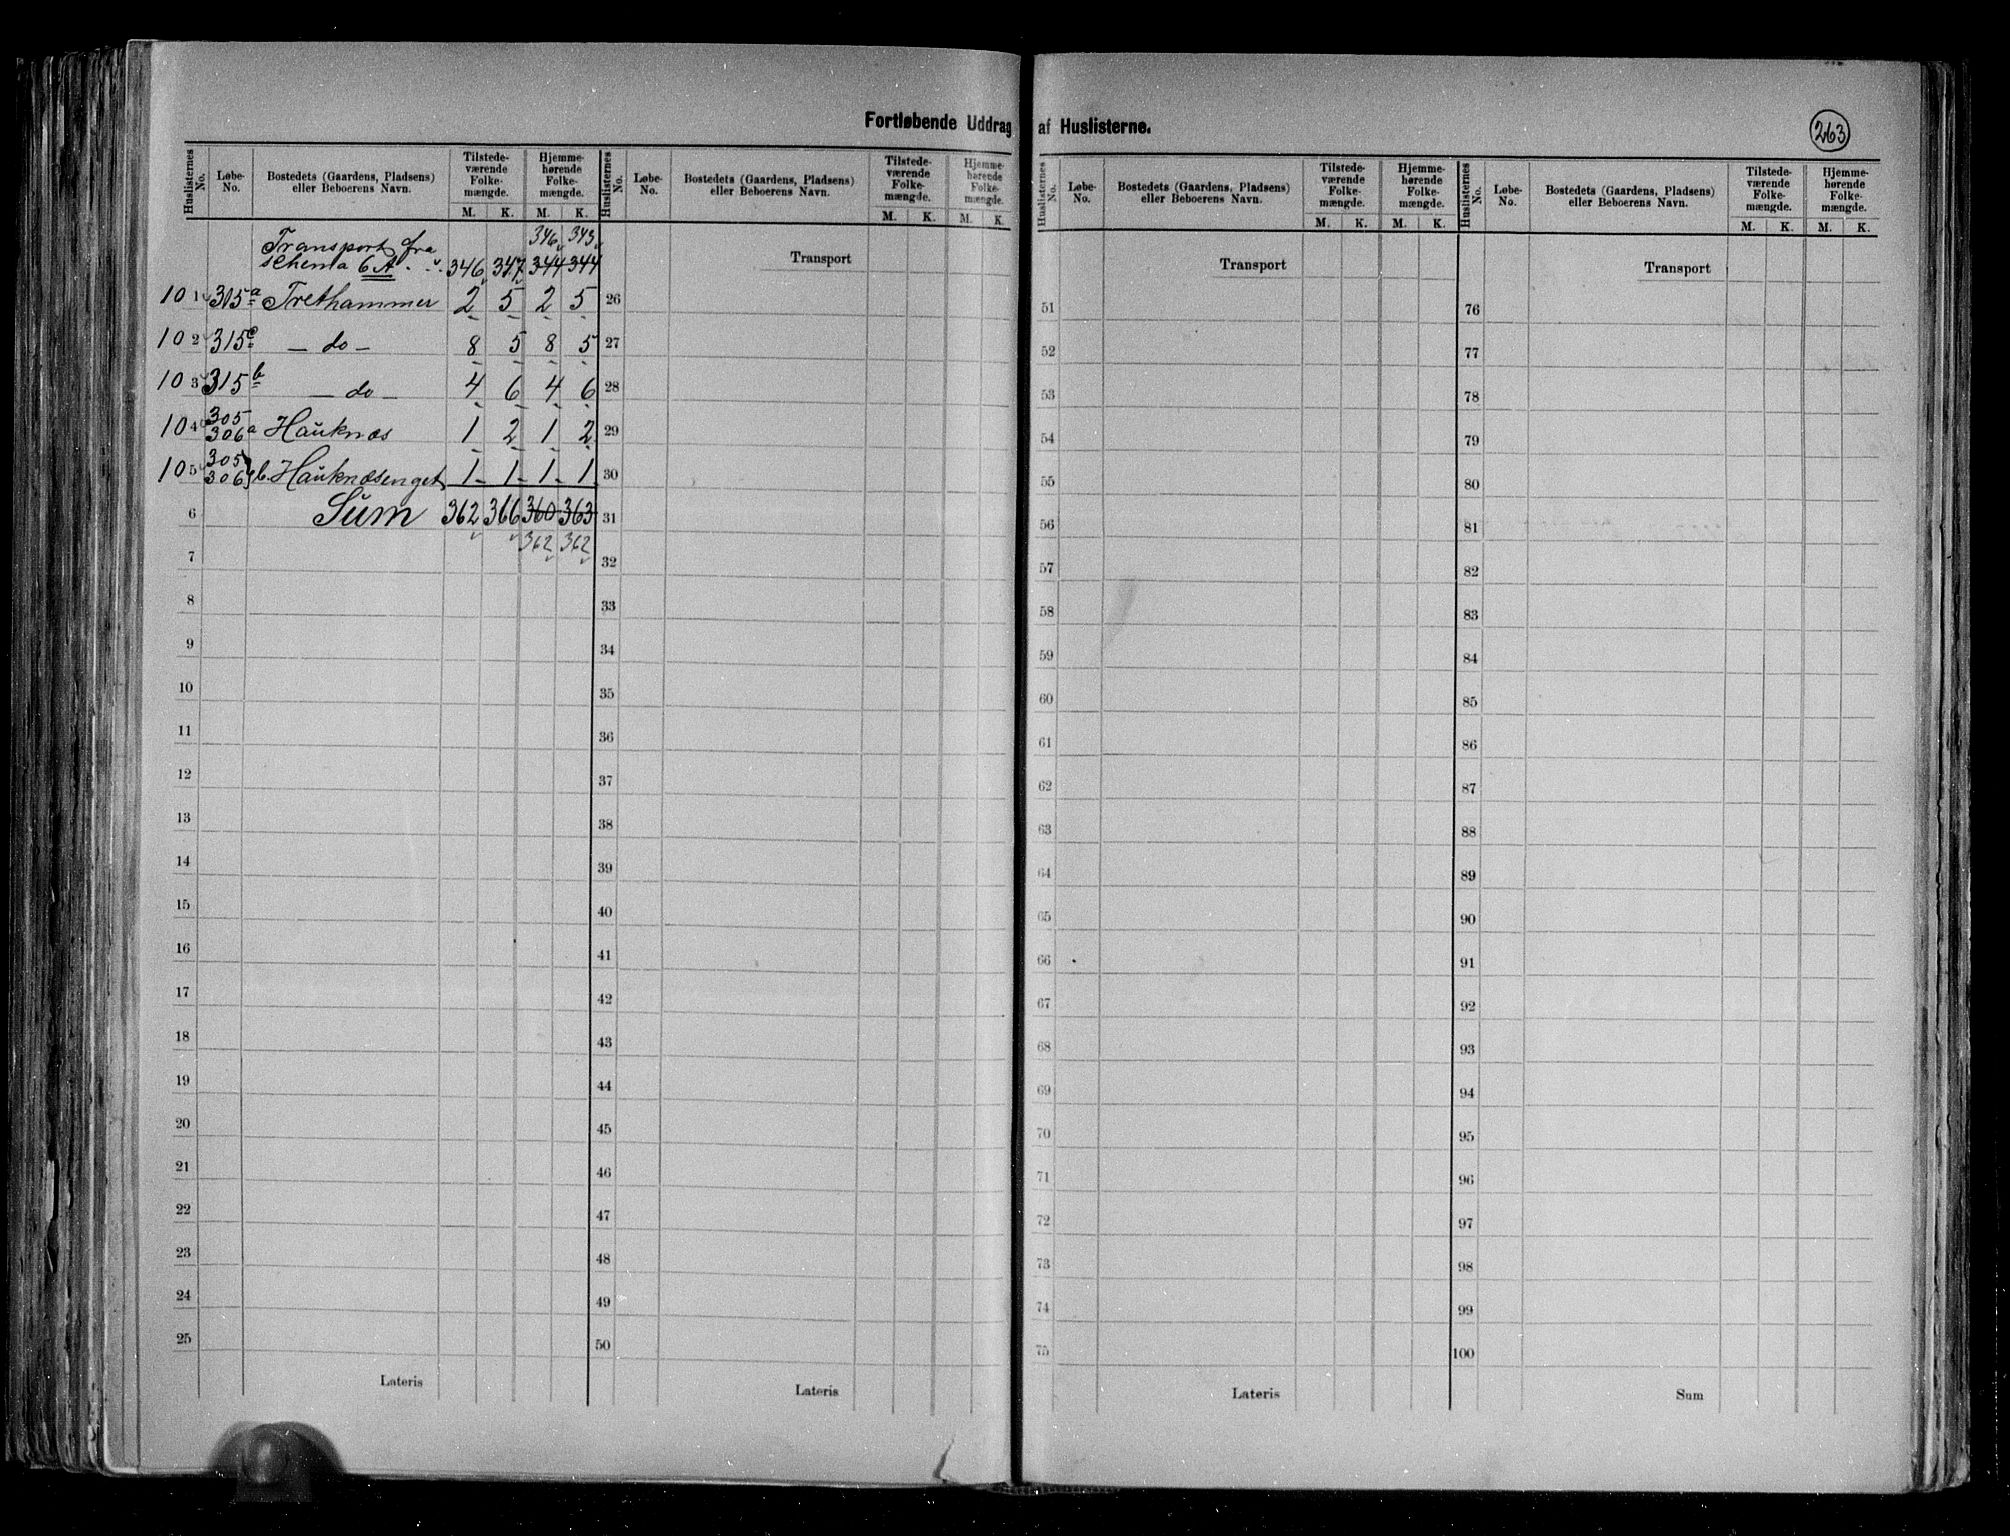 Fortløbende Uddrag af Huslisterne.
263
Huslisternes No. | Løbe-No. | Bostedets (Gaardens, Pladsens) eller Beboerens Navn. | Tilstedeværende Folkemængde. M. K. | Hjemmehørende Folkemængde. M. K.
346 343
Transport fra
schema 6A. 346 347 344 344
101 305a Trethammer 2 5 2 5
102 315c — do — 8 5 8 5
103 315b — do — 4 6 4 6
104 305 306 a Hauknæs 1 2 1 2
105 305 306 } b. Hauknæsenget 1 1 1 1
6 Sum 362 366 360 363
362 362
7
8
9
10
11
12
13
14
15
16
17
18
19
20
21
22
23
24
25
Lateris
Huslisternes No. | Løbe-No. | Bostedets (Gaardens, Pladsens) eller Beboerens Navn. | Tilstedeværende Folkemængde. M. K. | Hjemmehørende Folkemængde. M. K.
Transport
26
27
28
29
30
31
32
33
34
35
36
37
38
39
40
41
42
43
44
45
46
47
48
49
50
Lateris
Huslisternes No. | Løbe-No. | Bostedets (Gaardens, Pladsens) eller Beboerens Navn. | Tilstedeværende Folkemængde. M. K. | Hjemmehørende Folkemængde. M. K.
Transport
51
52
53
54
55
56
57
58
59
60
61
62
63
64
65
66
67
68
69
70
71
72
73
74
75
Lateris
Huslisternes No. | Løbe-No. | Bostedets (Gaardens, Pladsens) eller Beboerens Navn. | Tilstedeværende Folkemængde. M. K. | Hjemmehørende Folkemængde. M. K.
Transport
76
77
78
79
80
81
82
83
84
85
86
87
88
89
90
91
92
93
94
95
96
97
98
99
100
Sum